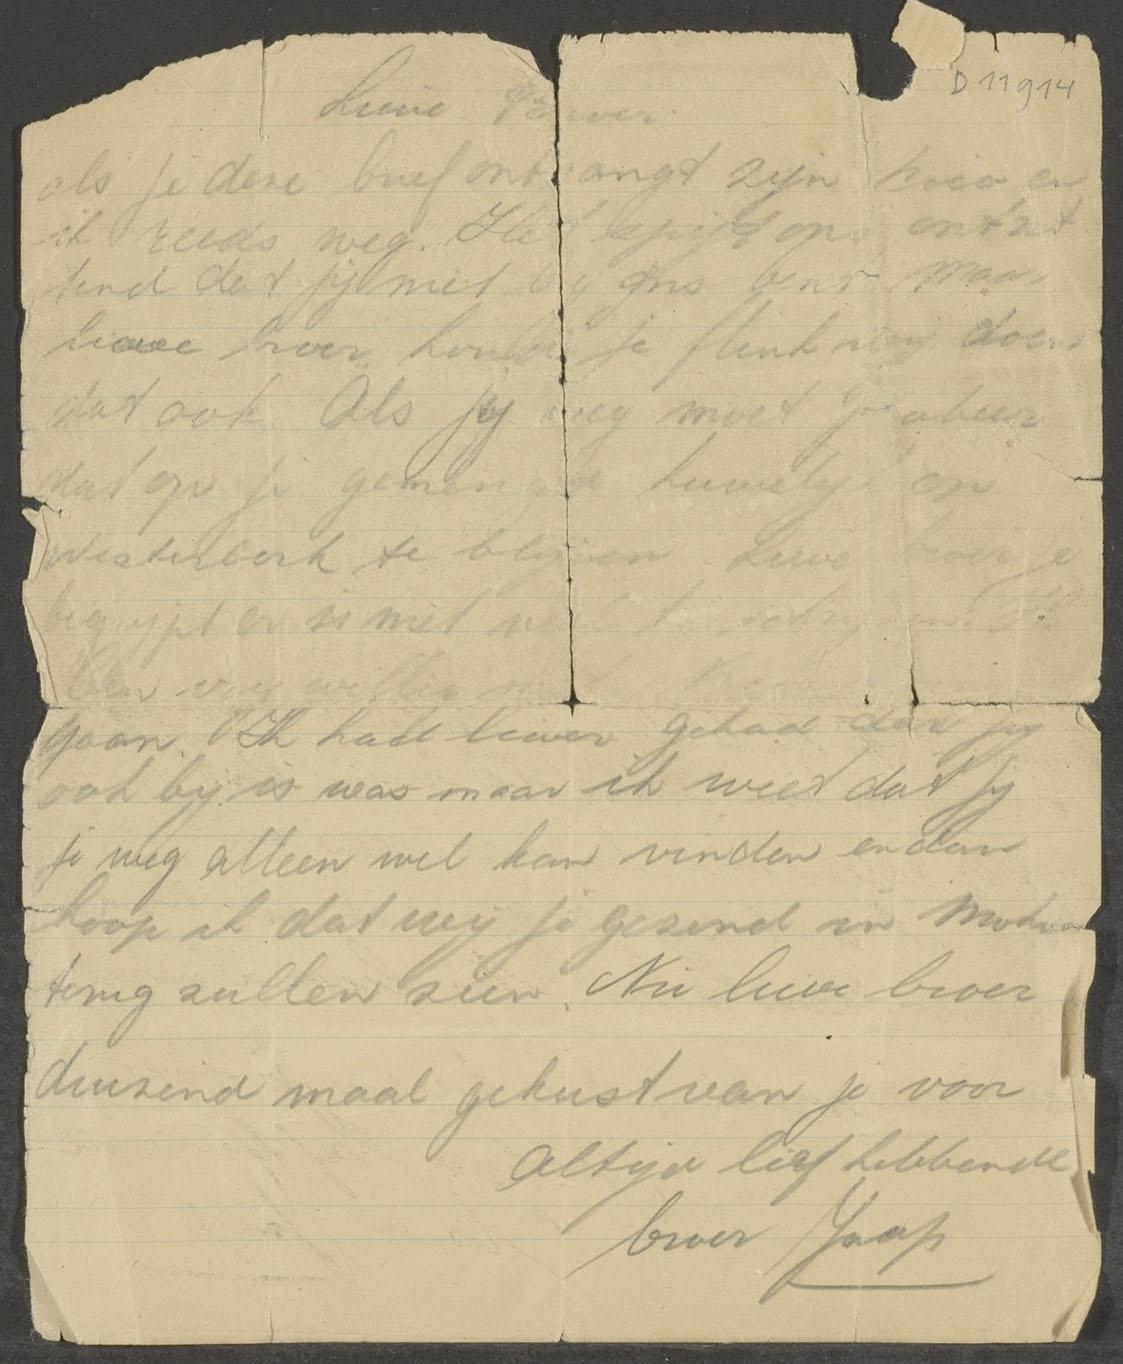 D 11914
Lieve Broer.
als je deze brief ontvangt zijn en
ik reeds weg. Het spijt ons ontzet
tend dat jij niet bij ons bent maar
lieve broer houdt je flink wij doen
dat ook. Als jij weg moet probeer
dat op je gemengde huwelijk op
Westerbork te blijven. Lieve broer je
begrijpt er is niet veel te schrijven. Ik
ben vrij willig
gaan. Ik had liever gehad dat jij
ook bij is was maar ik weet dat jij
je weg alleen wel kan vinden en dan
hoop ik dat wij je gezond in Mokum
terug zullen zien. Nu lieve broer
duizend maal gekust van je voor
Altijd lief hebbende
broer Jaap